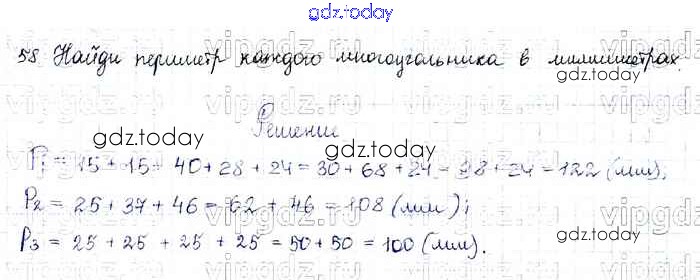 gdz.today
58 Найди периметр каждого многоугольника в миллиметрах.
gdz.today
gdz.today
Решение
P₁ = 15 + 15 + 40 + 28 + 24 = 30 + 68 + 24 = 98 + 24 = 122 (мм);
gdz.today
P₂ = 25 + 37 + 46 = 62 + 46 = 108 (мм);
P₃ = 25 + 25 + 25 + 25 = 50 + 50 = 100 (мм).
gdz.today